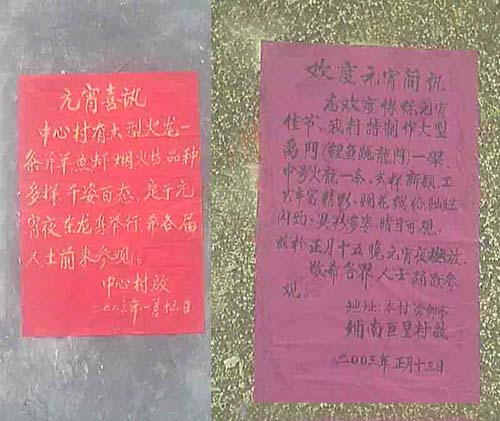 元宵喜讯
中心村有大型火龙一
条并羊鱼虾烟火均品种
多样、千姿百态、定于元
宵夜在龙身举行、希各届
人士前来参观。
中心村启
二00三年一月十三日
欢度元宵简讯
为欢度传统元宵
佳节、我村特制作大型
禹門(鲤鱼跳龍門)一架,
中号火龍一条、式样新颖、工
艺丰富精彩、烟花缤纷灿烂
闪灼、異彩多姿、晴目可观。
正月十五晚元宵夜燃放。
敬希各界人士踊跃参
观。
地址:本村
南巨星村启
二00三年正月十三日